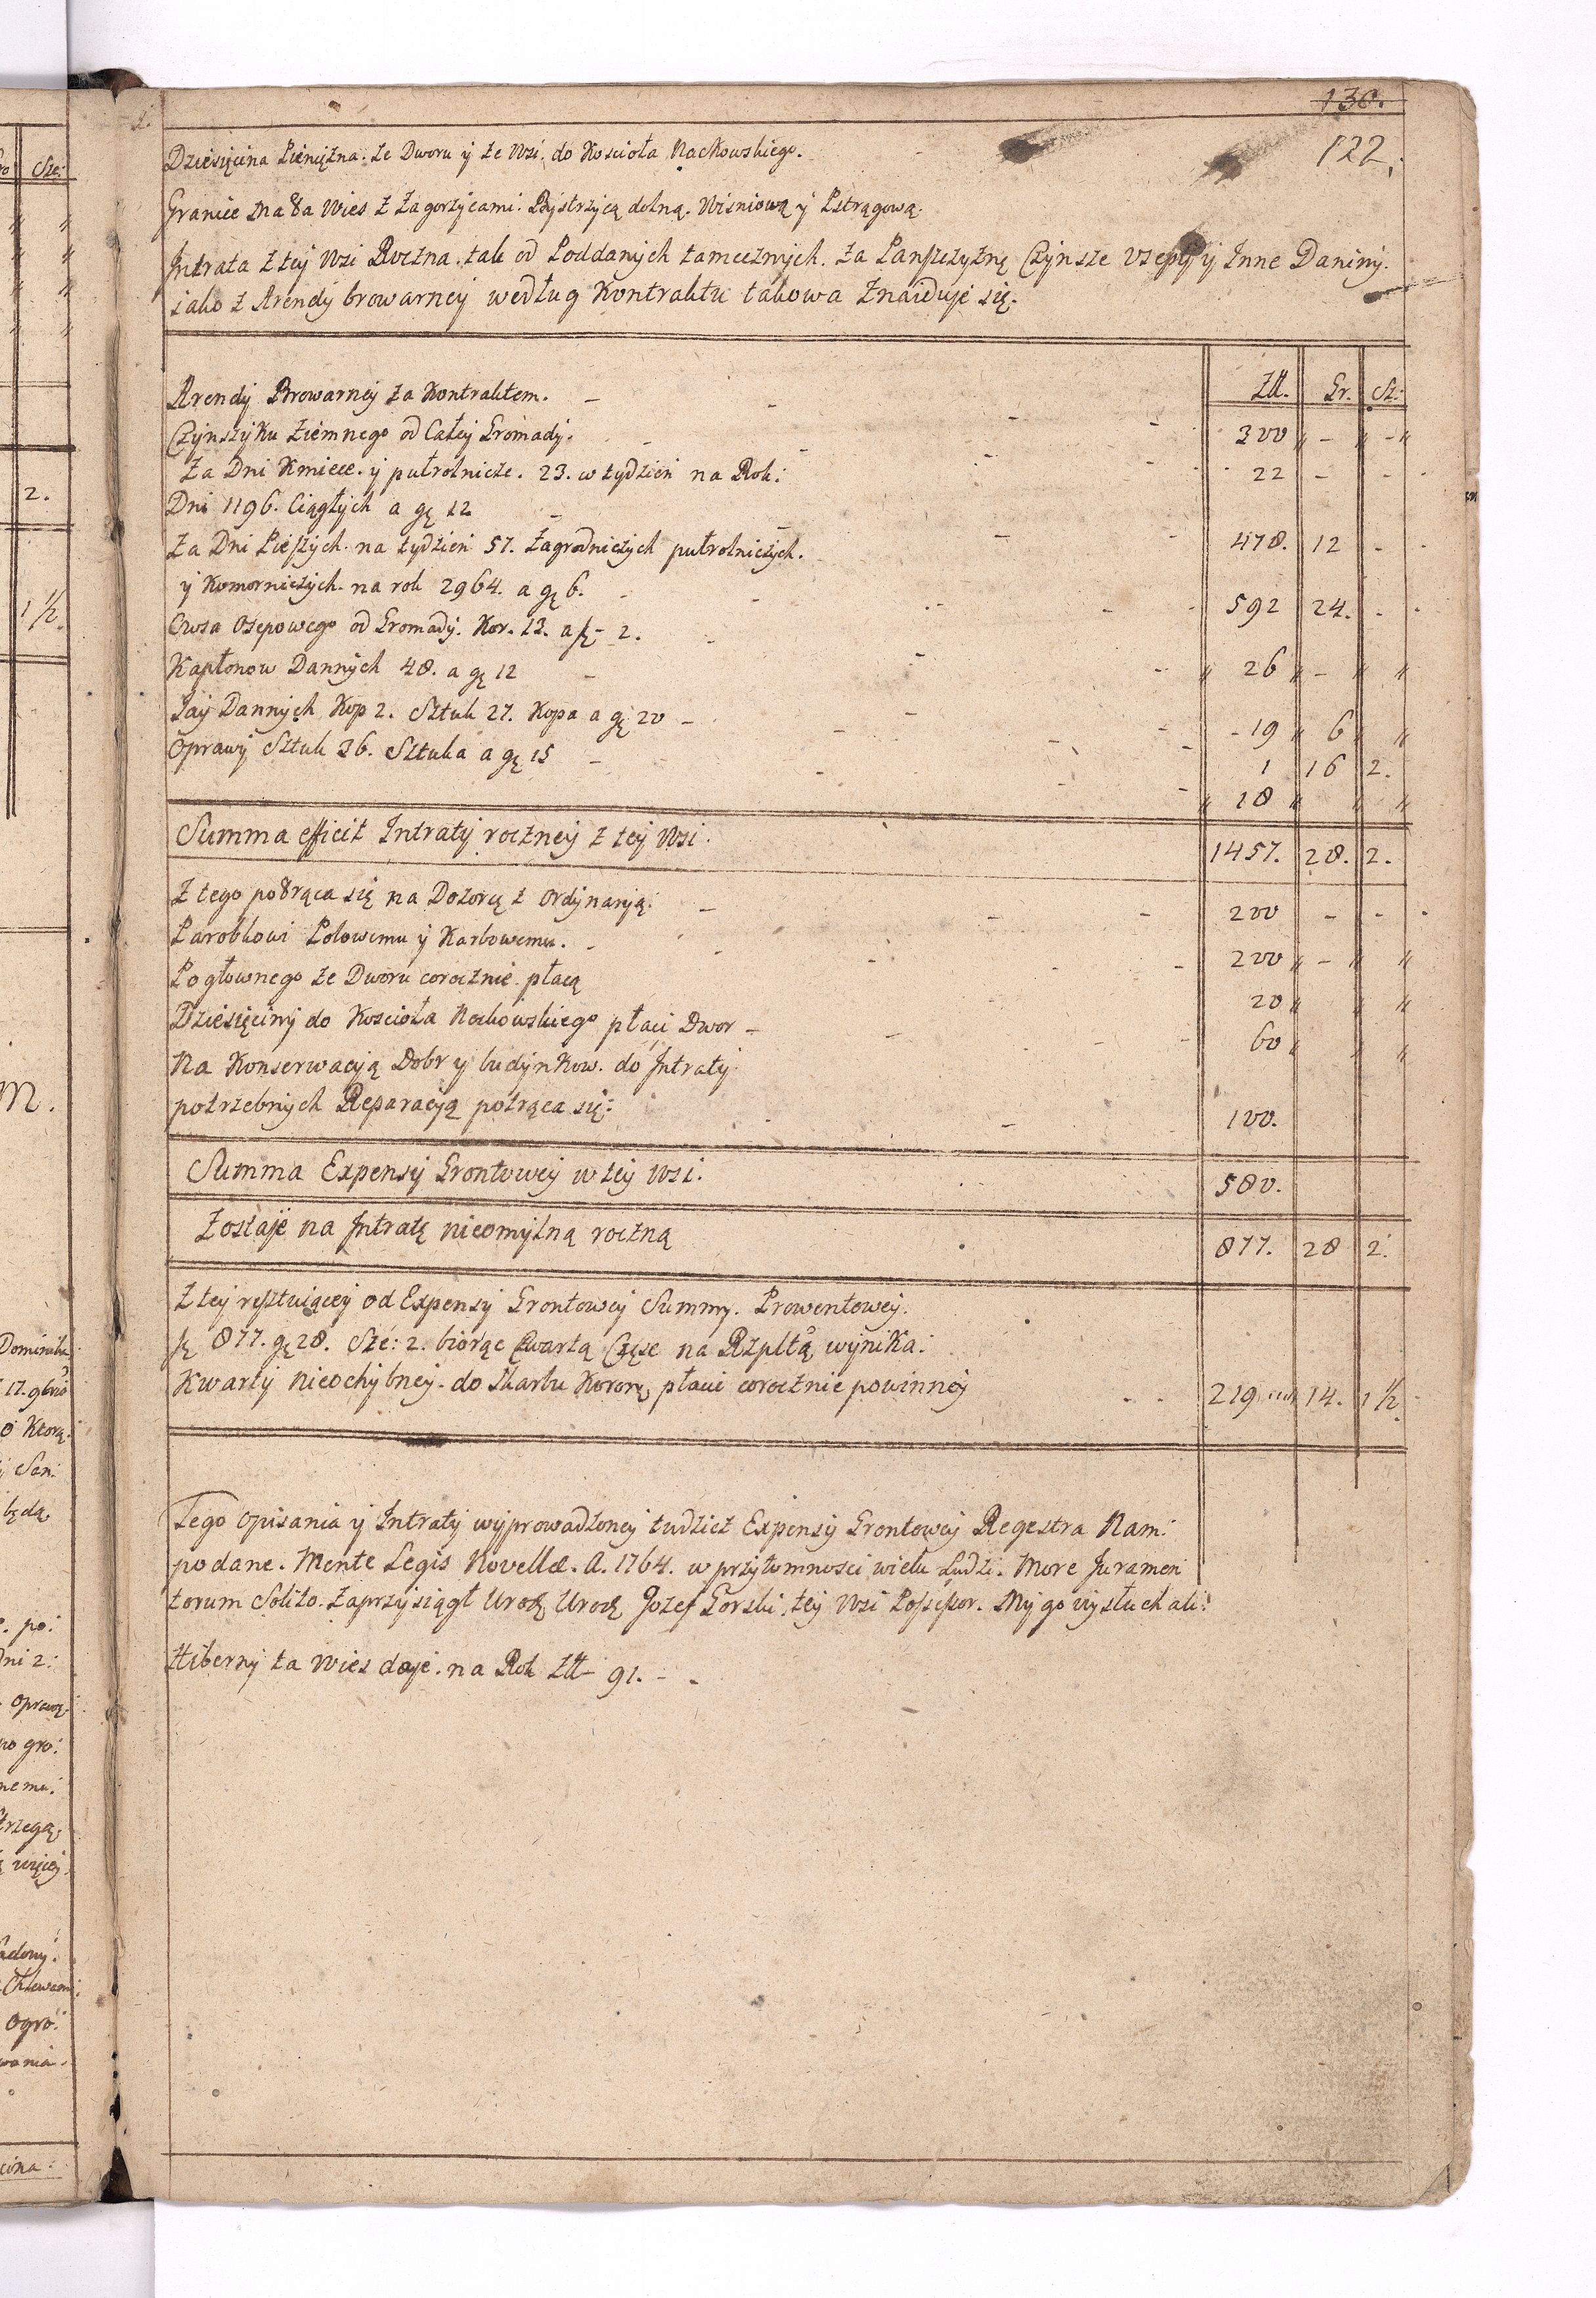 130.
122.
Dziesięcina Pieniężna. ze Dworu y ze Wsi. do Koscioła Nockowskiego.
Granice ma ta Wies z Zagorzycami. Bystrzycą dolną. Wisniową y Pstrągową.
Intrata z tey Wsi Roczna. tak od Poddanych tamecznych. za Panszczyznę Czynsze Osepy y Inne Daniny.
jako z Arendy browarney według Kontraktu takowa znaiduje się.
Złł. Gr. Sz:
Arendy Browarney za Kontraktem. 300 „ - „ - „
Czynszyku Ziemnego od Całey Gromady. 22 - -
Za Dni Kmiece. y pułrolnicze. 23. w tydzien na Rok:
Dni 1196. Ciągłych a gę 12 478. 12 -
Za Dni Pieszych. na tydzien 57. Zagrodniczych pułrolniczych.
y Komorniczych. na rok 2964. a gę 6. 592 24. -
Owsa Osepowego od Gromady. Kor. 13. a fę - 2. „ 26 „ - „ „
Kapłonow Dannych 48. a gę 12 - 19 „ 6 „ „
Jaij Dannych Kop 2. Sztuk 27. Kopa a gę 20 - 1 16 2.
Oprawy Sztuk 36. Sztuka a gę 15 - „ 18 „ „ „
Summa efficit Intraty roczney z tey Wsi. 1457. 28. 2.
Z tego potrąca się na Dozorcę z Ordynaryą. 200 - -
Parobkowi Polowemu y Karbowemu. 200 „ - „ „
Pogłownego ze Dworu corocznie. płacą 20 „ „ „
Dziesięciny do Koscioła Nockowskiego płaci Dwor - 60 „ „ „
Na Konserwacyą Dobr y budynkow. do Intraty
potrzebnych Reparacyą potrąca się: 100.
Summa Expensy Grontowey w tey Wsi. 580.
Zostaje na Intratę nieomylną roczną 877. 28 2.
Z tey restuiącey od Expensy Grontowey Summy. Prowentowey.
fę 877. gę 28. Sze: 2. biorąc Czwartą Częsc na Rzpltą wynika.
Kwarty nieochybney. do Skarbu Koronę płacic corocznie powinney 219 14. 1 ½
Tego Opisania y Intraty wyprowadzoney tudziez Expensy Grontowey Regestra Nam:
podane. Mente Legis Novellæ. A. 1764. w przytomnosci wielu Ludzi. More Juramen
torum Solito. zaprzysiągł Urodz Urodz Jozef Gorski. tey Wsi Possessor. My go wysłuchali:
Hiberny ta Wies daje. na Rok Złł - 91. -